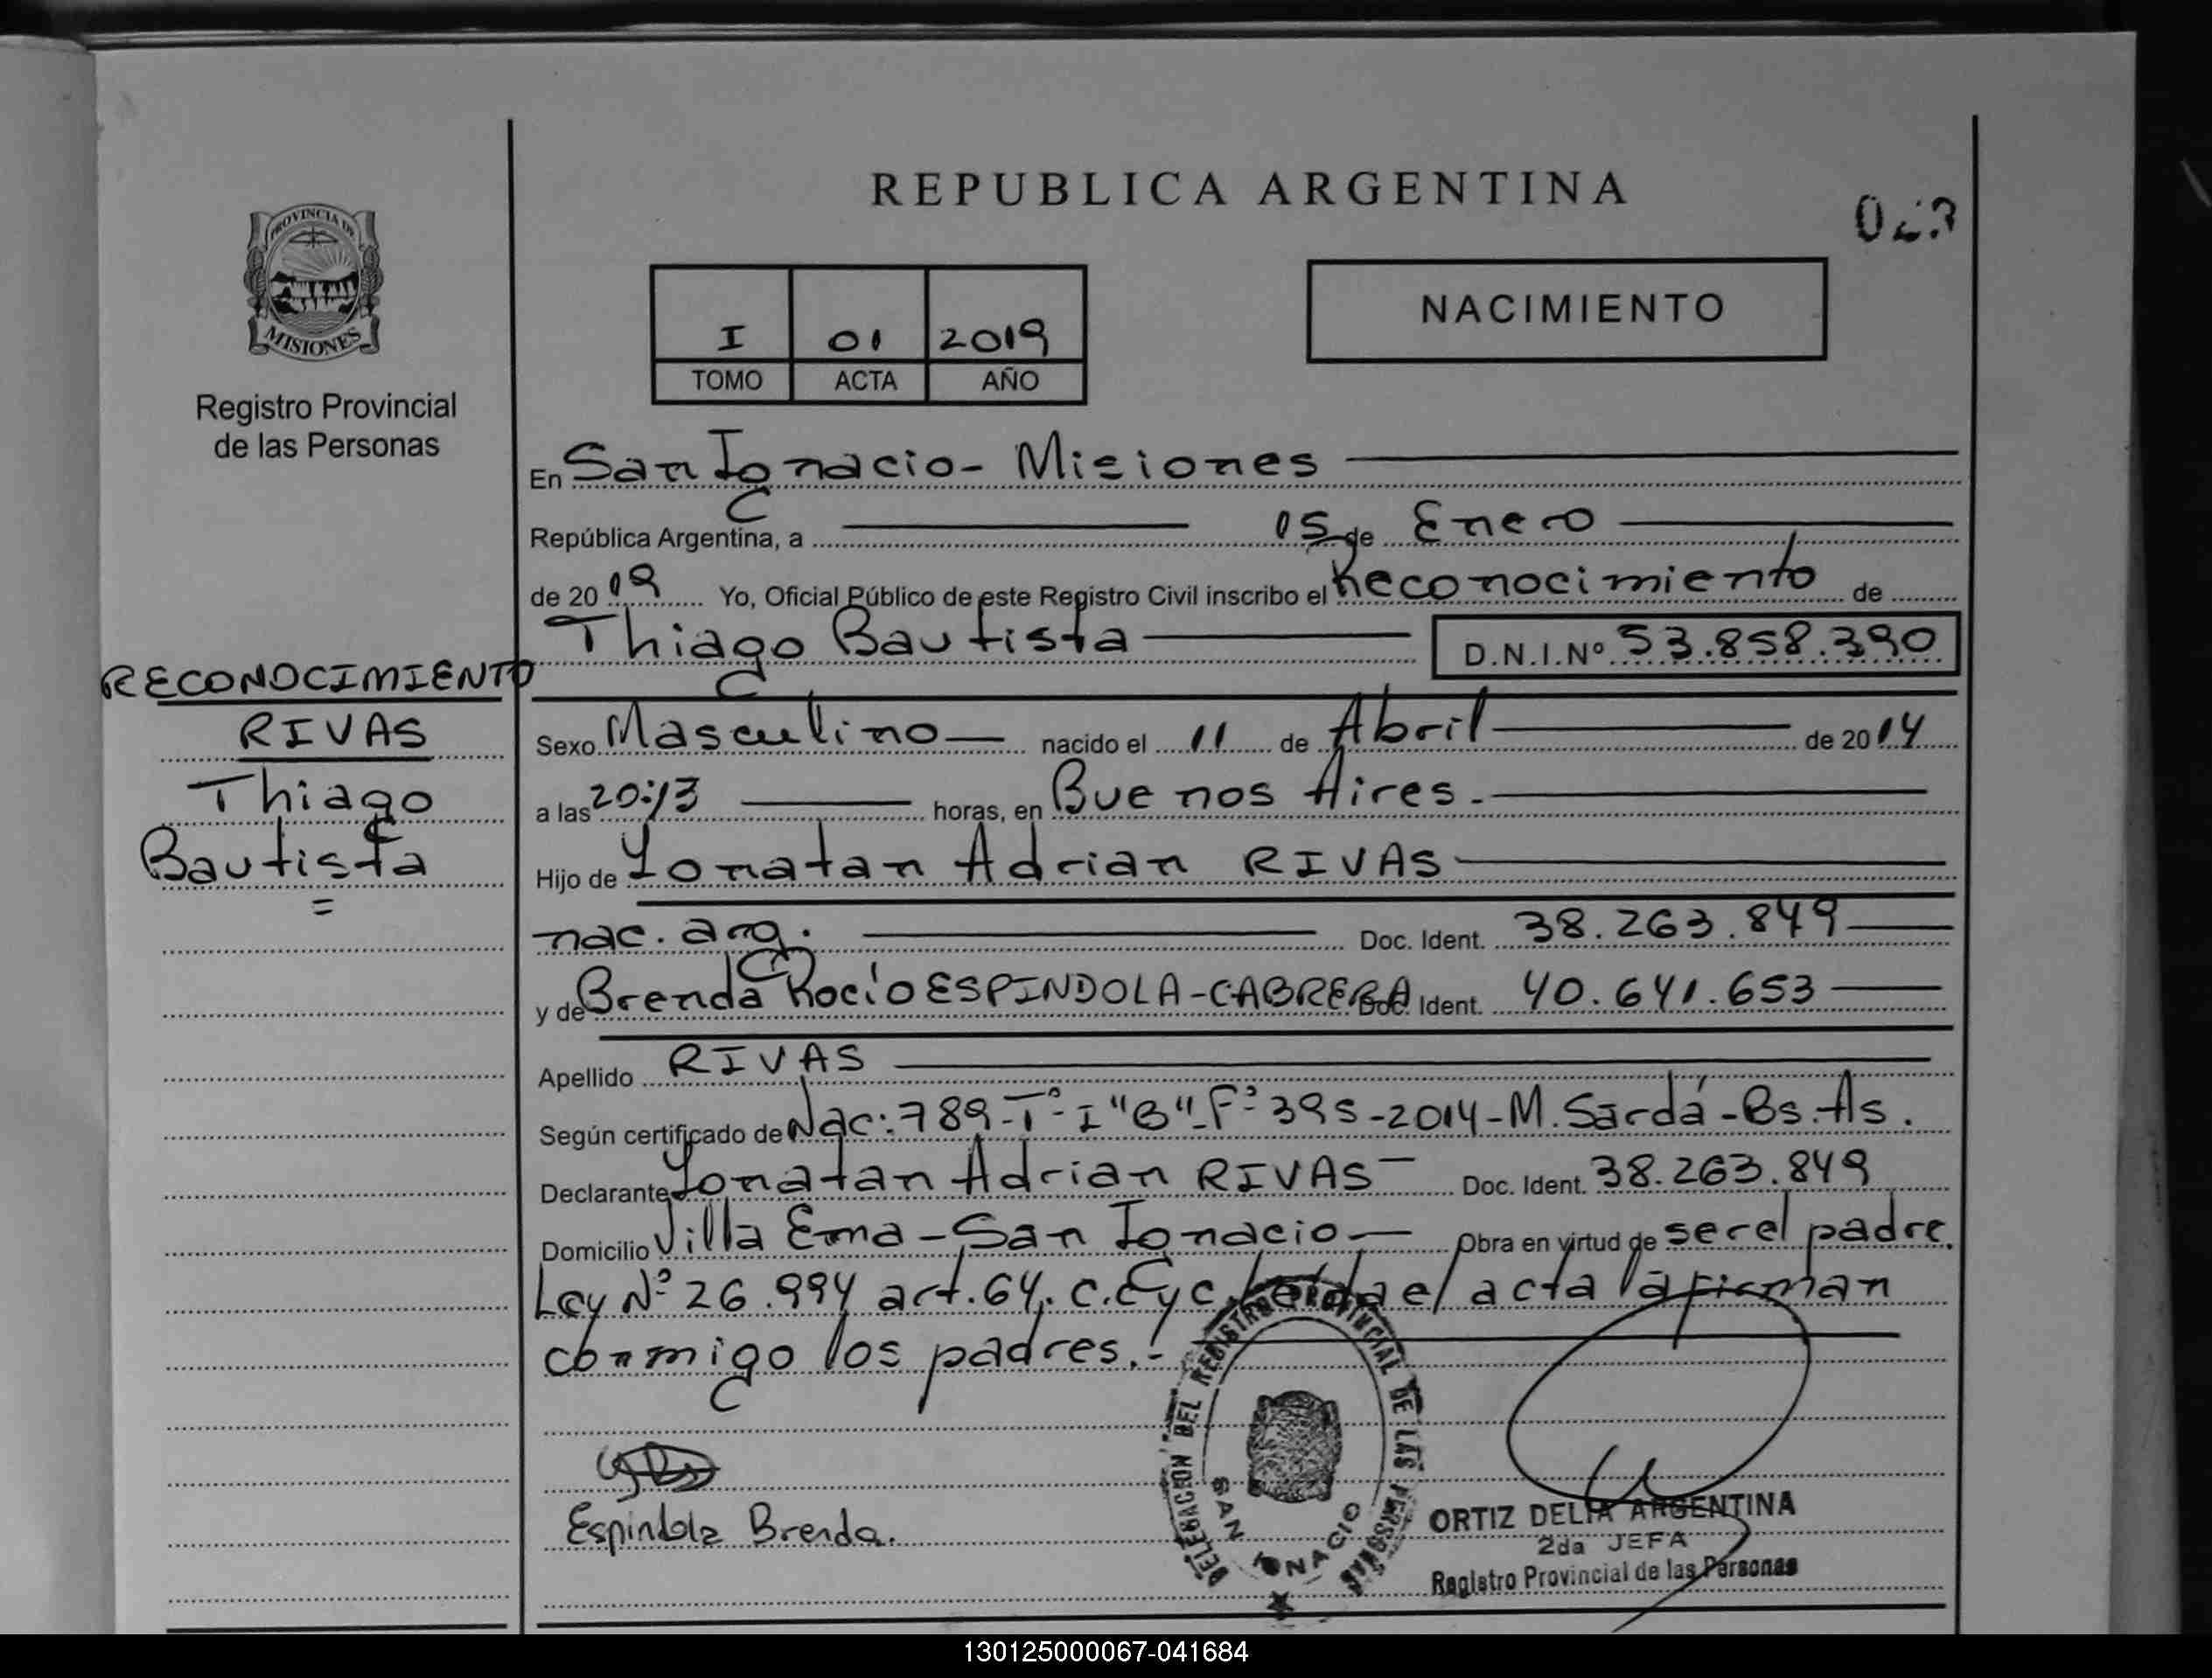 REPUBLICA ARGENTINA
PROVINCIA DE
MISIONES
Registro Provincial
de las Personas
I 01 2019
TOMO ACTA AÑO
NACIMIENTO
En San Ignacio - Misiones
República Argentina, a 15 de Enero
de 2019 Yo, Oficial Público de este Registro Civil inscribo el Reconocimiento de
Thiago Bautista D.N.I.Nº 53.858.390
RECONOCIMIENTO
RIVAS
Thiago
Bautista
=
Sexo Masculino nacido el 11 de Abril de 2014
a las 20:13 horas, en Buenos Aires.
Hijo de Yonatan Adrian RIVAS
nac. arg. Doc. Ident. 38.263.849
y de Brenda Rocío ESPINDOLA-CABRERA Doc. Ident. 40.641.653
Apellido RIVAS
Según certificado de Nac: 789-Tº-I "B"-Fº 395-2014-M. Sardá-Bs.As.
Declarante Yonatan Adrian RIVAS Doc. Ident. 38.263.849
Domicilio Villa Ema - San Ignacio Obra en virtud de ser el padre.
Ley Nº 26.994 art. 64. C.C y C. leída el acta la firman
conmigo los padres.
Espindola Brenda.
DELEGACION DEL REGISTRO PROVINCIAL DE LAS PERSONAS
SAN IGNACIO
ORTIZ DELIA ARGENTINA
2da JEFA
Registro Provincial de las Personas
130125000067-041684